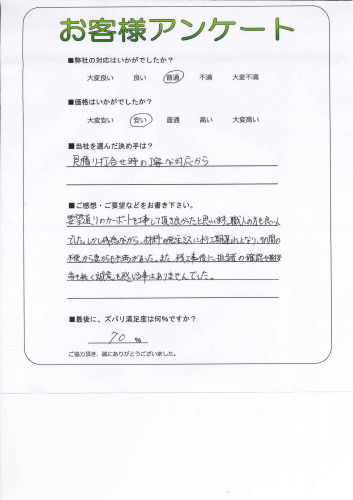 お客様アンケート
■弊社の対応はいかがでしたか?
大変良い 良い 普通 不満 大変不満
■価格はいかがでしたか?
大変安い 安い 普通 高い 大変高い
■当社を選んだ決め手は?
見積り打合せ時の丁寧な対応から
■ご感想・ご要望などをお書き下さい。
要望通りのカーポートを工事して頂き良かったと思います。職人の方も良い人
でした。しかし残念ながら、材料の発注ミスにより工期遅れとなり、
不便 から妻からも不満があった。また、残工事後に担当者の確認や謝
等も無く誠意を感じる事はありませんでした。
■最後に、ズバリ満足度は何%ですか?
70 %
ご協力頂き、誠にありがとうございました。